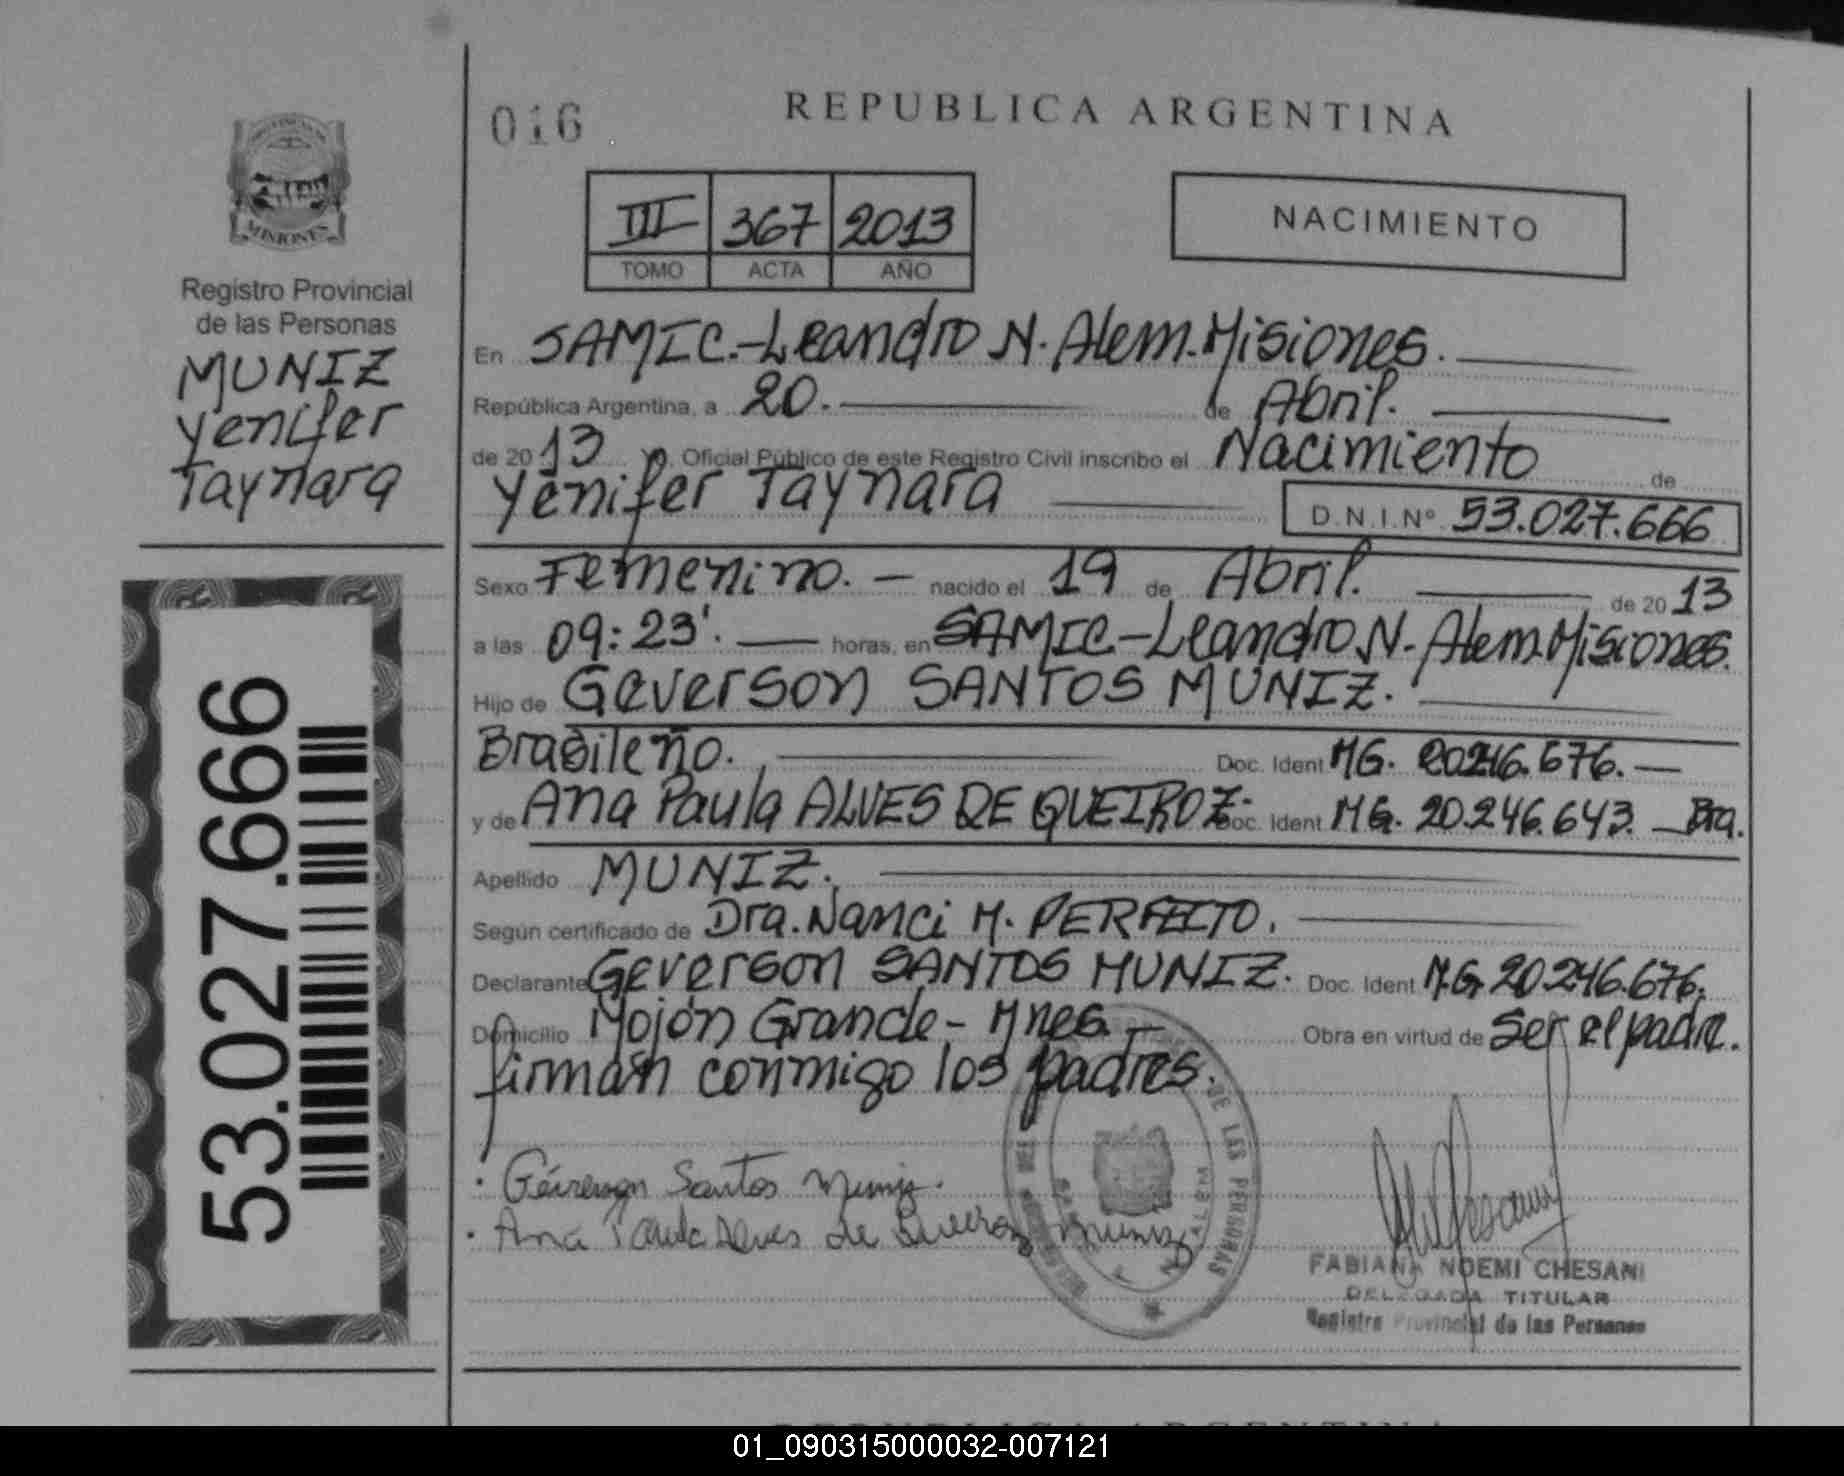 016
REPUBLICA ARGENTINA
MISIONES
Registro Provincial
de las Personas
MUNIZ
Yenifer
Taynara
53.027.666
III 367 2013
TOMO ACTA AÑO
NACIMIENTO
En SAMIC.-Leandro N. Alem.Misiones.
República Argentina, a 20. de Abril.
de 2013 yo, Oficial Público de este Registro Civil inscribo el Nacimiento de
Yenifer Taynara D.N.I.Nº 53.027.666
Sexo Femenino. nacido el 19 de Abril. de 2013
a las 09:23'. horas, en SAMIC-Leandro N. Alem.Misiones.
Hijo de Geverson SANTOS MUNIZ.
Brasileño. Doc. Ident MG. 20246.676.
y de Ana Paula ALVES DE QUEIROZ. Doc. Ident MG. 20.246.643. Bra.
Apellido MUNIZ.
Según certificado de Dra. Nanci M. PERFECTO.
Declarante Geverson SANTOS MUNIZ. Doc. Ident M.G 20.246.676.
Domicilio Mojón Grande- Mnes.- Obra en virtud de Ser el padre.
firman conmigo los padres.
Santos Muniz.
Ana Paula Alves de Queiroz Muniz
DE LAS PERSONAS
ALEM
FABIANA NOEMI CHESANI
DELEGADA TITULAR
Registro Provincial de las Personas
REPUBLICA ARGENTINA
01_090315000032-007121